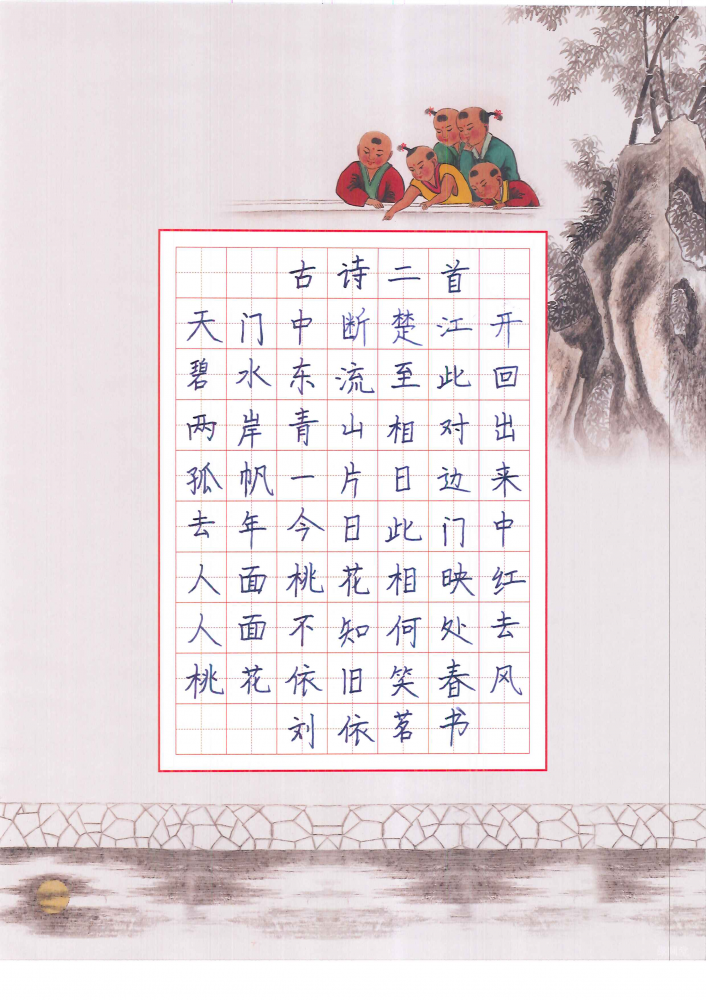 古诗二首
天门中断楚江开
碧水东流至此回
两岸青山相对出
孤帆一片日边来
去年今日此门中
人面桃花相映红
人面不知何处去
桃花依旧笑春风
刘依茗书